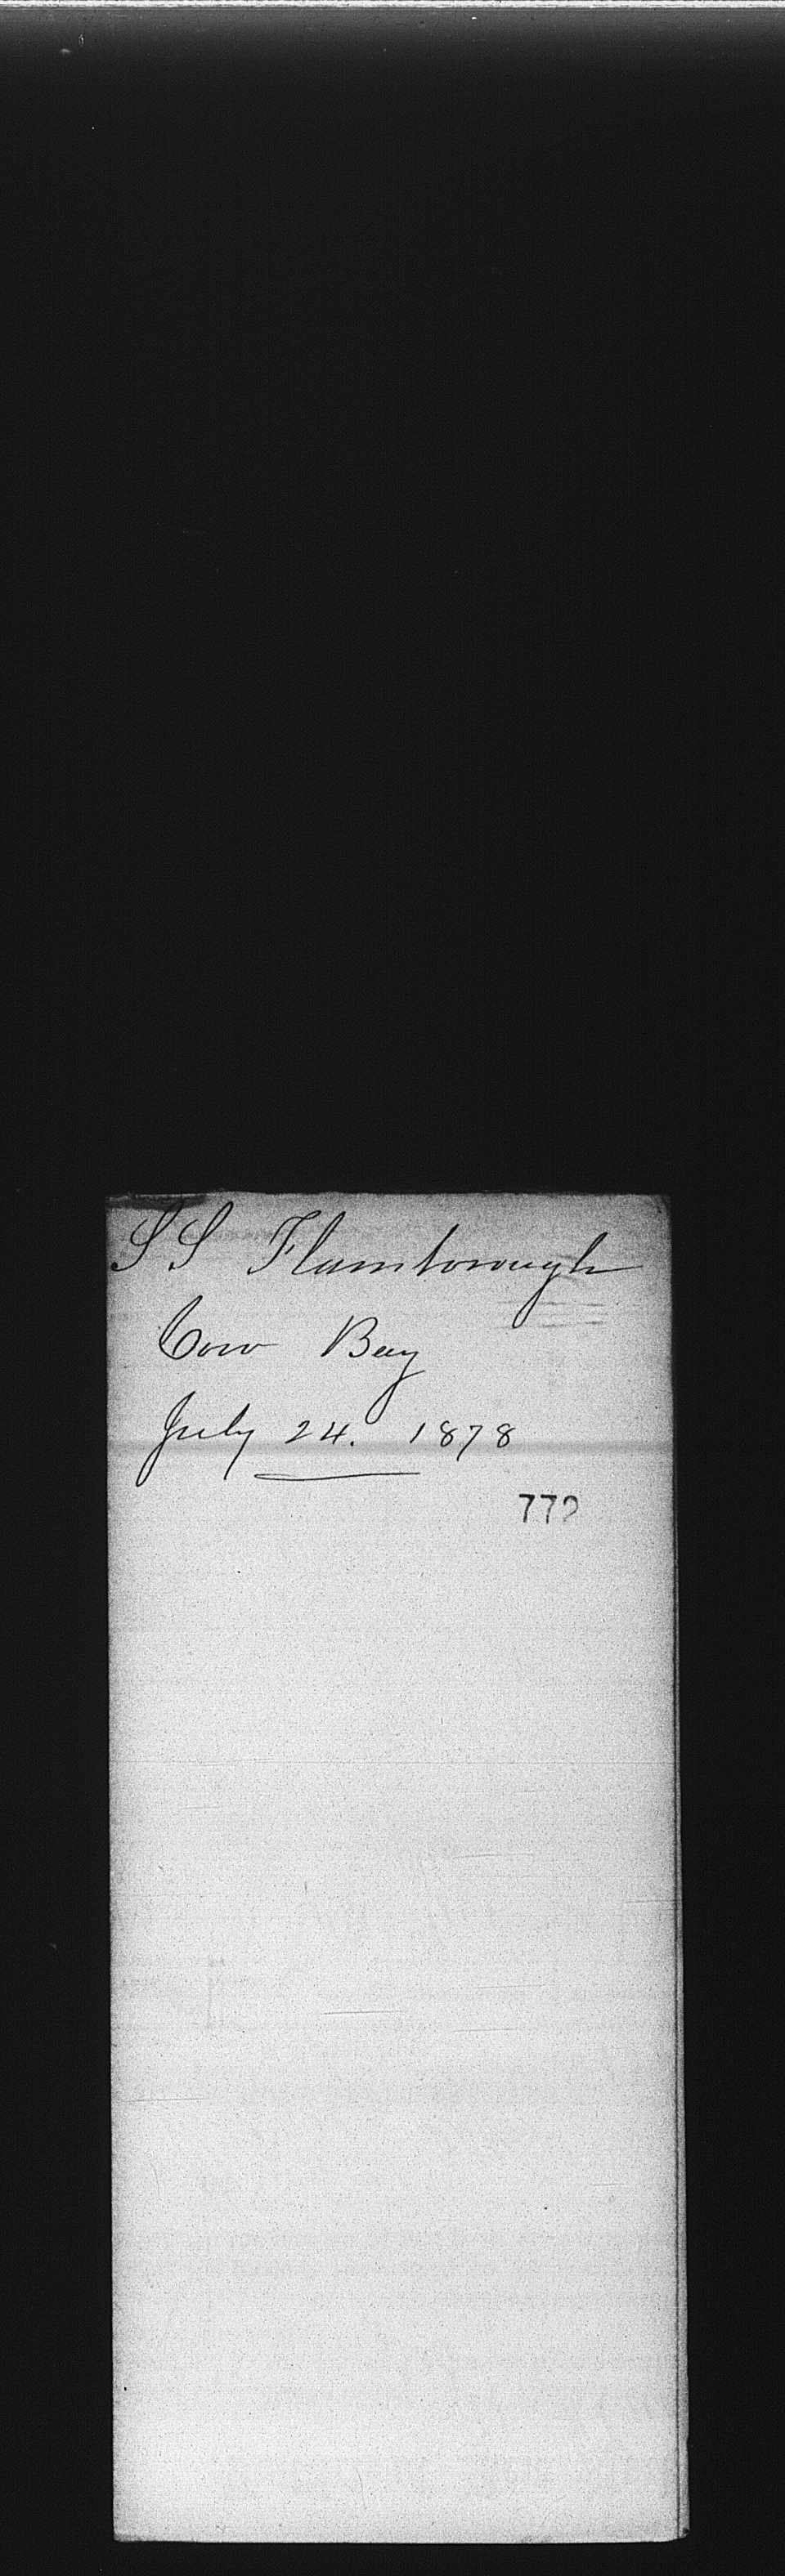 SS Flamborough
Cow Bay
July 24. 1878
772